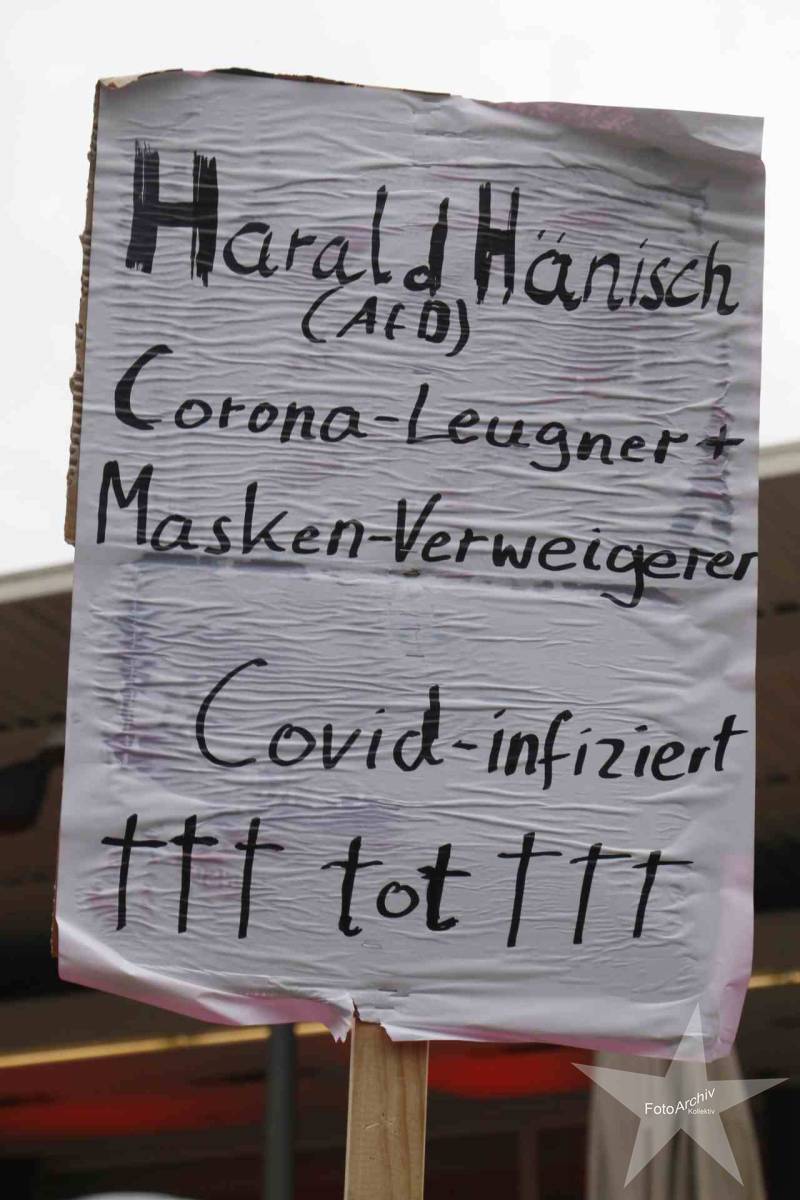 Harald Hänisch
(AfD)
Corona-Leugner +
Masken-Verweigerer
Covid-infiziert
††† tot †††
FotoArchiv
Kollektiv